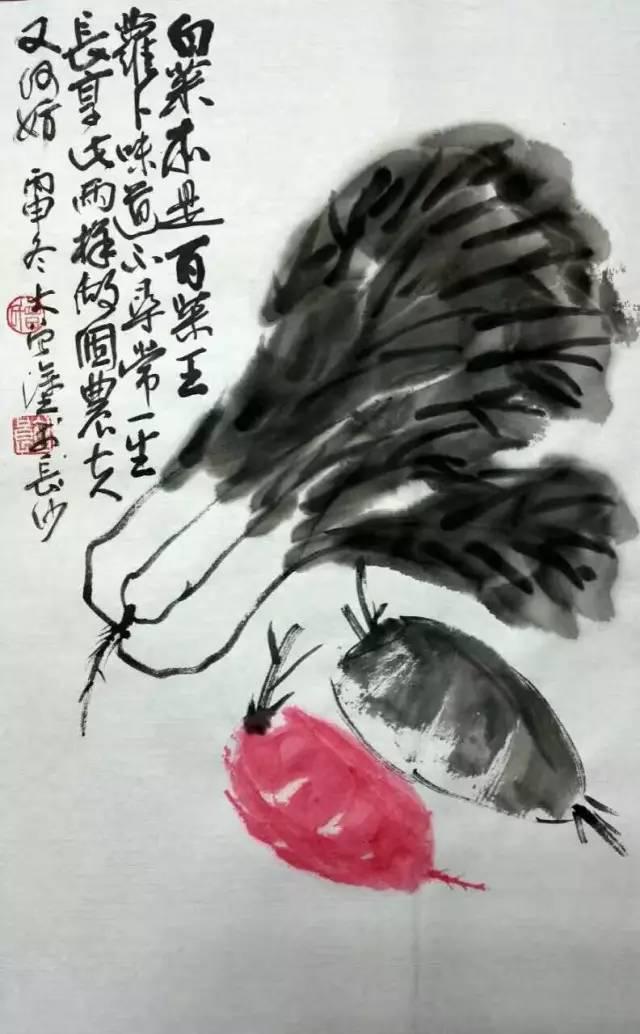 白菜本是百菜王
蘿卜味道不尋常一生
長享此兩樣做個農夫
又何妨 雷冬 大 塗於長沙